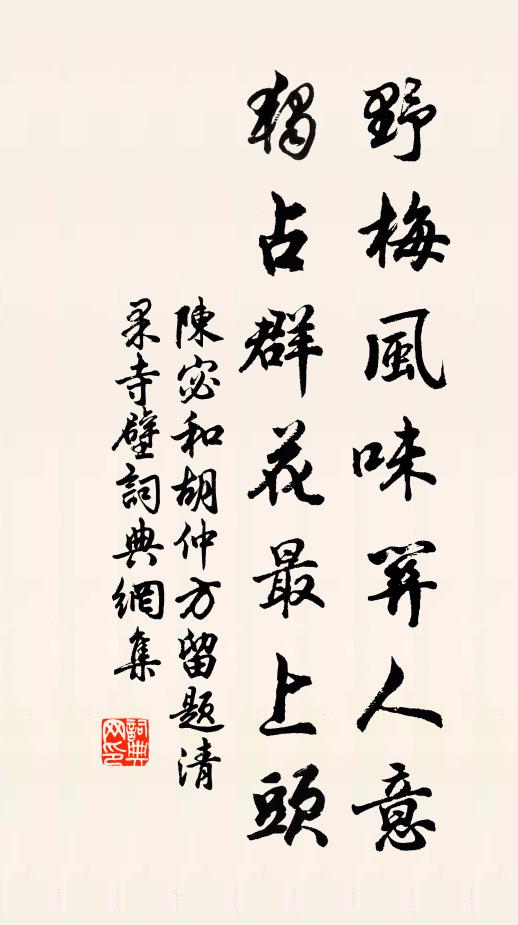 野梅風味開人意
獨占群花最上頭
陳宓和胡仲方留題清
果寺壁詞典網集
詞典
网印